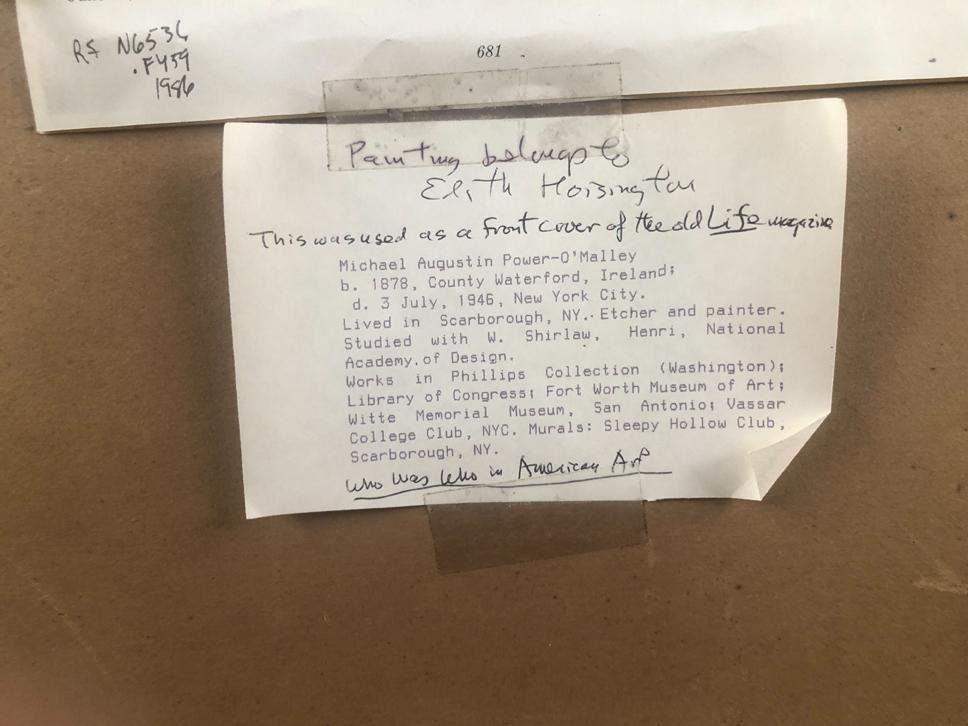 681
Rf N6536
.F459
1986
Painting belongs to
Elith Hoisington
This was used as a front cover of the old Life magazine
Michael Augustin Power-O'Malley
b. 1878, County Waterford, Ireland;
d. 3 July, 1946, New York City.
Lived in Scarborough, NY. Etcher and painter.
Studied with W. Shirlaw, Henri, National
Academy of Design.
Works in Phillips Collection (Washington);
Library of Congress; Fort Worth Museum of Art;
Witte Memorial Museum, San Antonio; Vassar
College Club, NYC. Murals: Sleepy Hollow Club,
Scarborough, NY.
Who Was Who in American Art